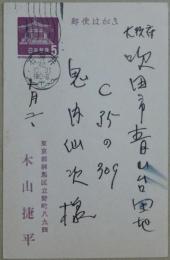 郵便はがき
日本郵便
5
大阪府
吹田市青山台団地
C35の309
鬼内仙次様
東京都練馬区立野町八九四
木山捷平